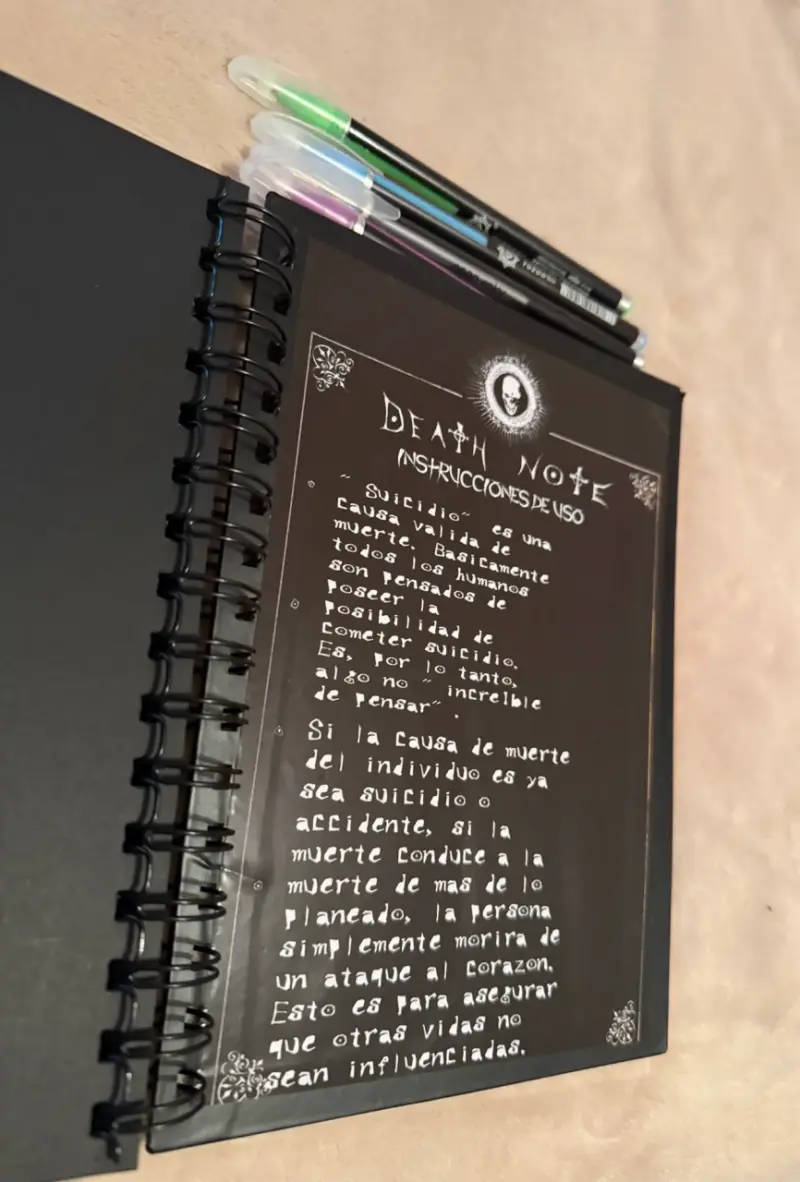 DEATH NOTE
INSTRUCCIONES DE USO
" Suicidio" es una
causa valida de
muerte. Basicamente
todos los humanos
son pensados de
poseer la
posibilidad de
cometer suicidio.
Es, por lo tanto,
algo no " increible
de pensar" .
Si la causa de muerte
del individuo es ya
sea suicidio o
accidente, si la
muerte conduce a la
muerte de mas de lo
planeado, la persona
simplemente morira de
un ataque al corazon.
Esto es para asegurar
que otras vidas no
sean influenciadas.